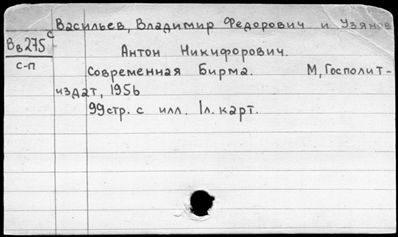 Васильев, Владимир Федорович и Узянов
Вв275 с
с-п
Антон Никифорович.
Современная Бирма. М, Госполит-
издат, 1956
99стр. с илл. 1л. карт.